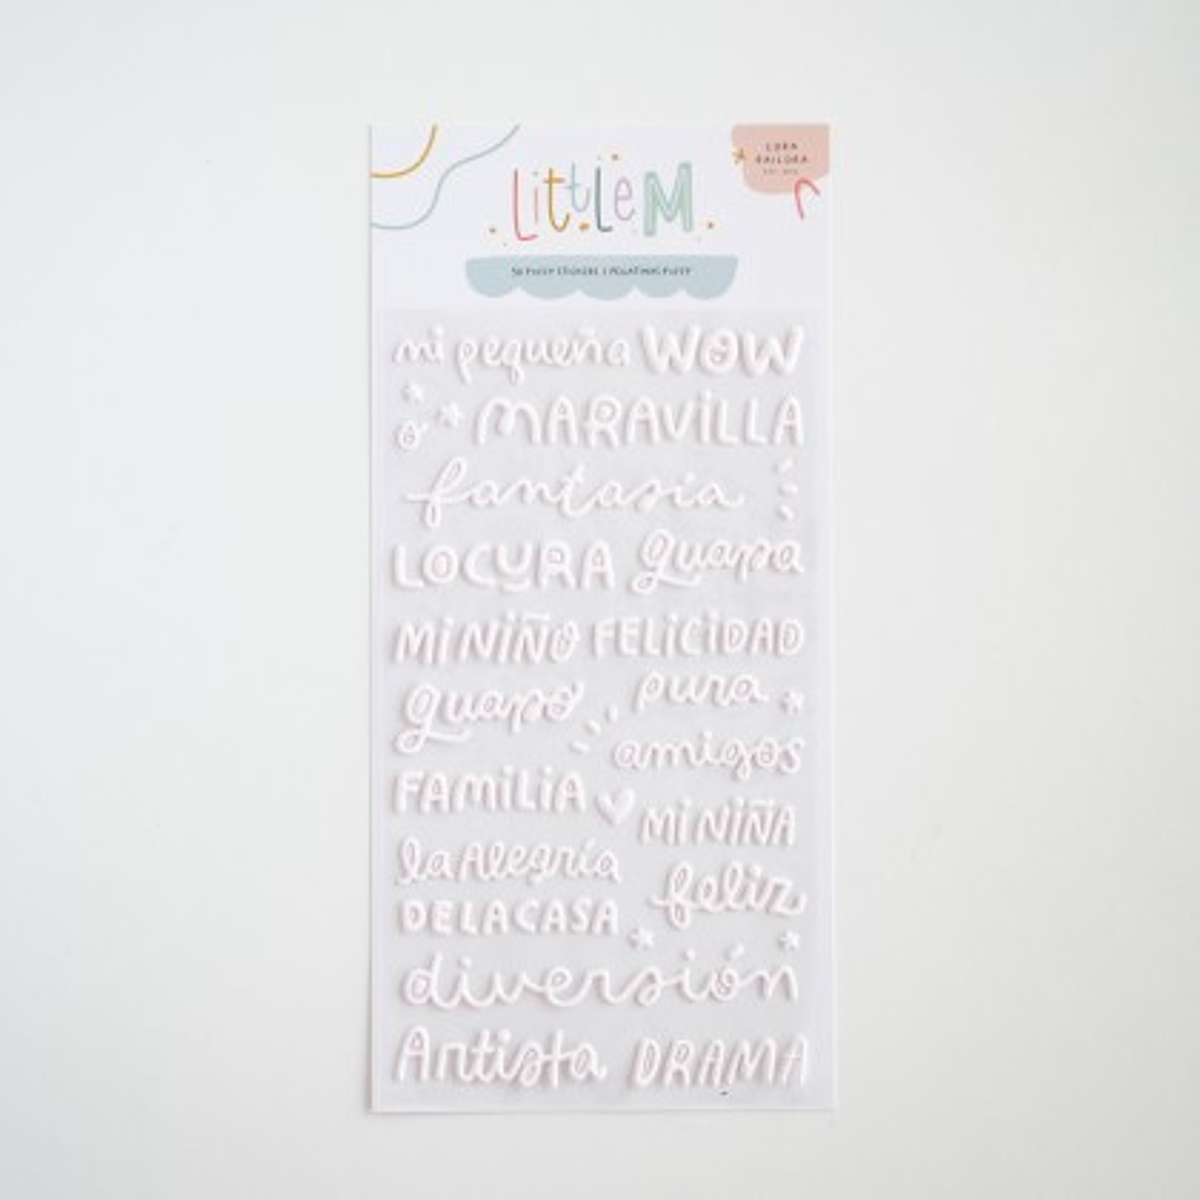 LittLE M
LORA
BAILORA
mi pequeña WOW
MARAViLLA
fantasia
LOCURA guapa
Mi NiÑO FELiCiDAD
guapo pura
amigos
FAMiLiA
Mi NiÑA
la Alegría
feliz
DE LA CASA
diversión
Artista DRAMA